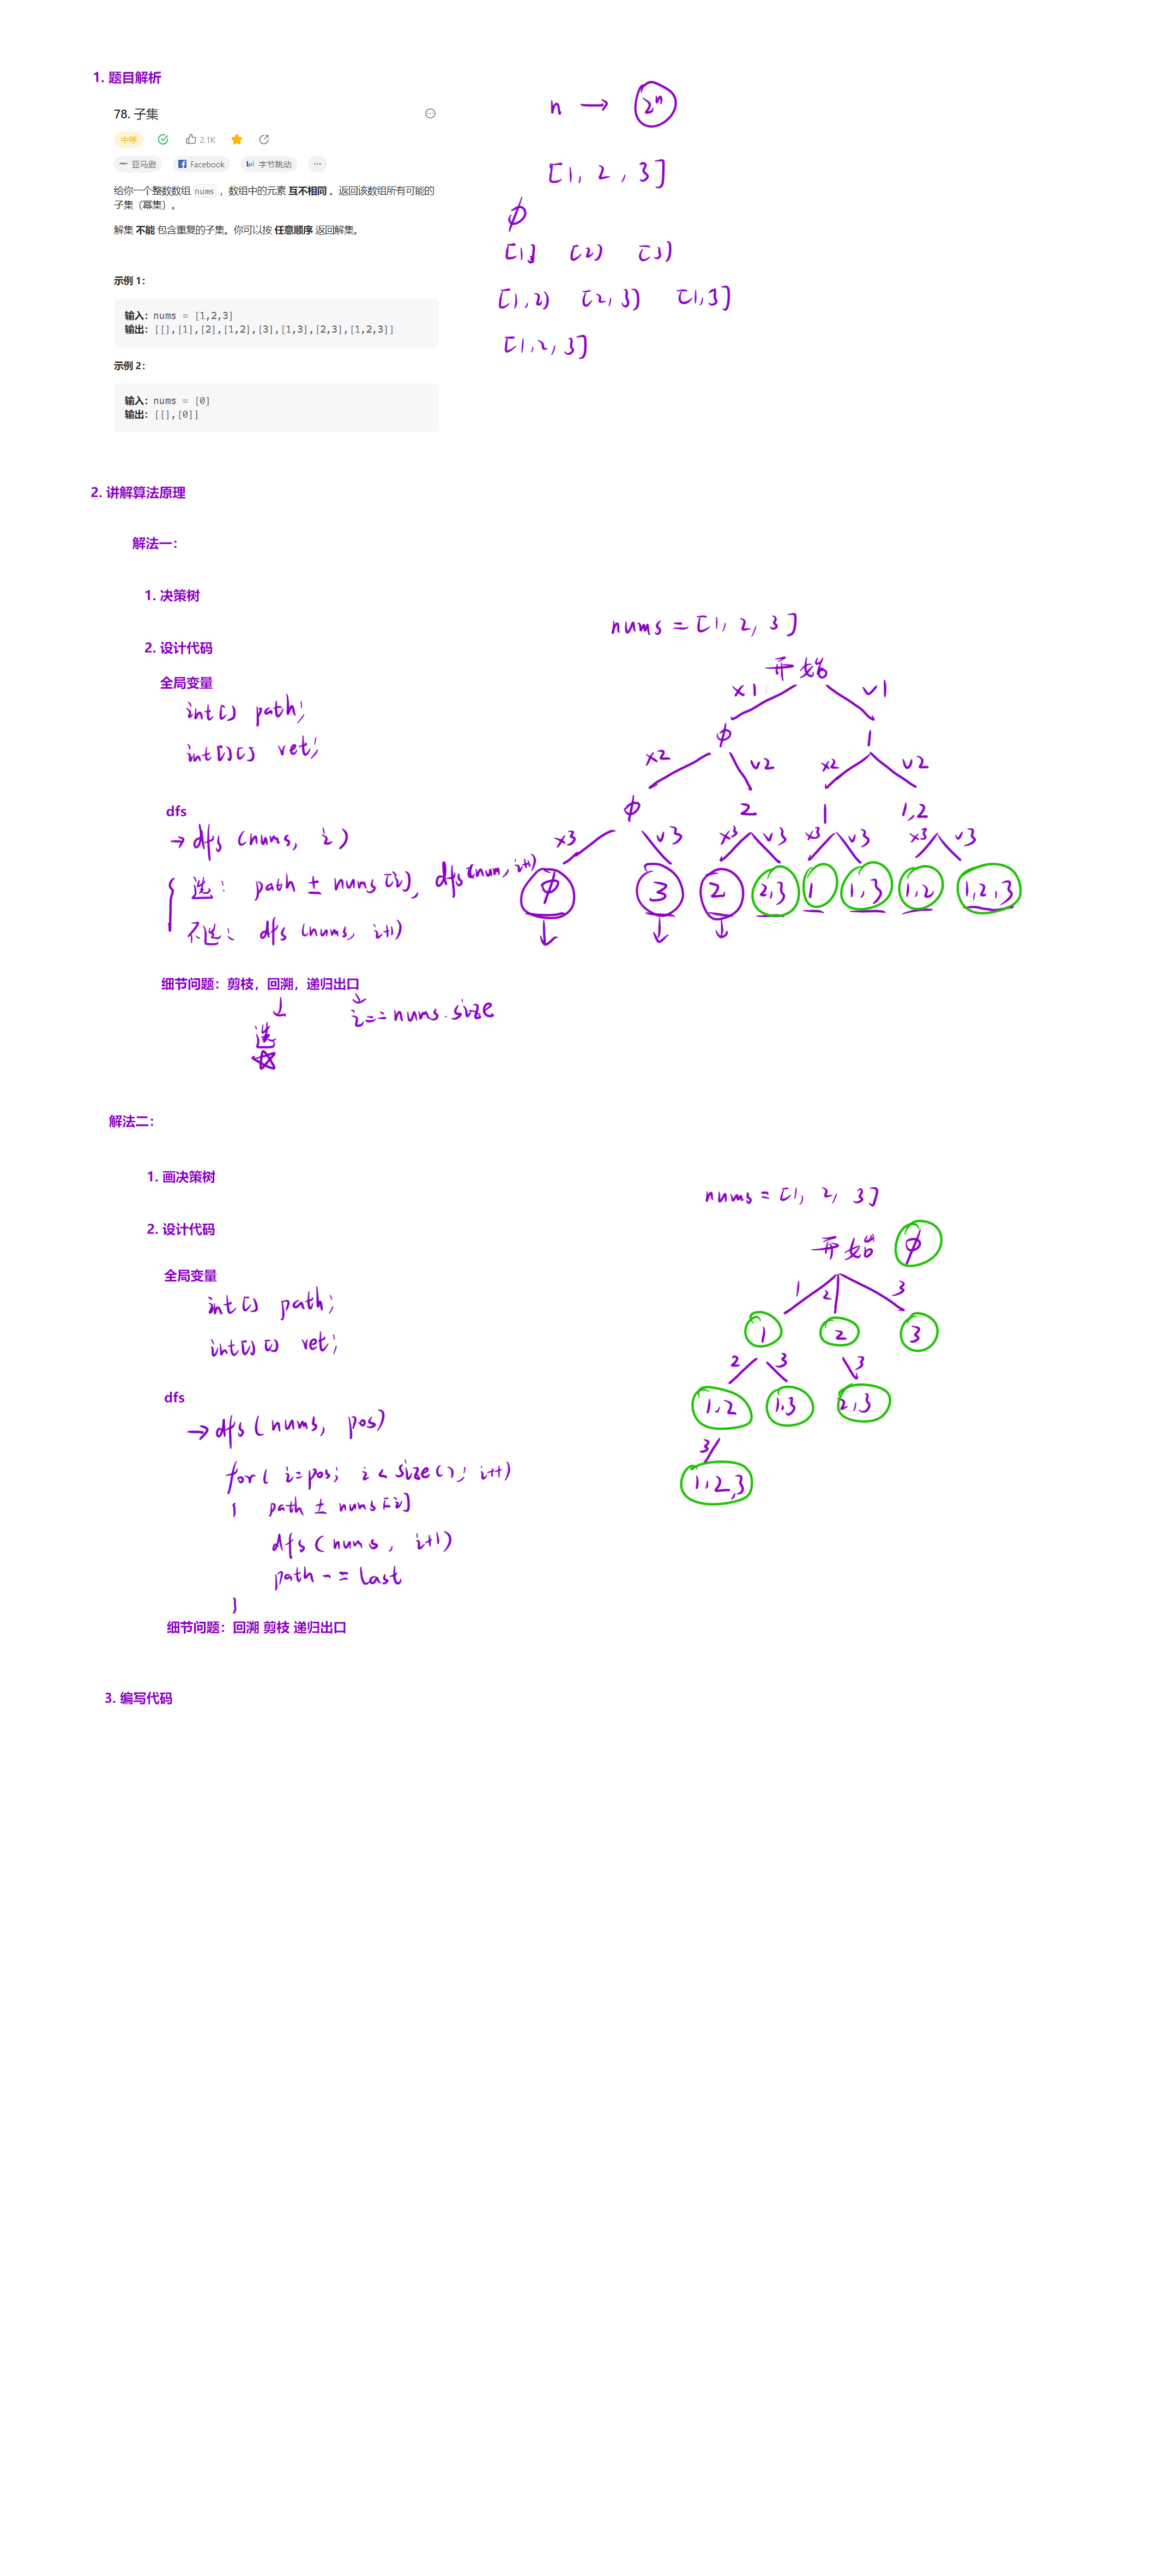 1. 题目解析
78. 子集
中等 2.1K
亚马逊 Facebook 字节跳动 ...
给你一个整数数组 nums ，数组中的元素 互不相同 。返回该数组所有可能的
子集（幂集）。
解集 不能 包含重复的子集。你可以按 任意顺序 返回解集。
示例 1：
输入：nums = [1,2,3]
输出：[[],[1],[2],[1,2],[3],[1,3],[2,3],[1,2,3]]
示例 2：
输入：nums = [0]
输出：[[],[0]]
n → 2ⁿ
[1, 2, 3]
φ
[1] [2] [3]
[1,2] [2,3] [1,3]
[1,2,3]
2. 讲解算法原理
解法一：
1. 决策树
2. 设计代码
全局变量
int[] path;
int[][] ret;
dfs
→ dfs (nums, i)
选： path += nums[i], dfs(num, i+1)
不选： dfs (nums, i+1)
细节问题：剪枝，回溯，递归出口
↓ ↓
选 i == nums.size
☆
nums = [1, 2, 3]
开始
×1 √1
φ 1
×2 √2 ×2 √2
φ 2 1 1,2
×3 √3 ×3 √3 ×3 √3 ×3 √3
φ 3 2 2,3 1 1,3 1,2 1,2,3
↓ ↓ ↓
解法二：
1. 画决策树
2. 设计代码
全局变量
int[] path;
int[][] ret;
dfs
→ dfs(nums, pos)
for( i=pos; i < size(); i++)
{ path += nums[i]
dfs(nums, i+1)
path -= last
}
细节问题：回溯 剪枝 递归出口
nums = [1, 2, 3]
开始 φ
1 2 3
1 2 3
2 3 3
1,2 1,3 2,3
3
1,2,3
3. 编写代码